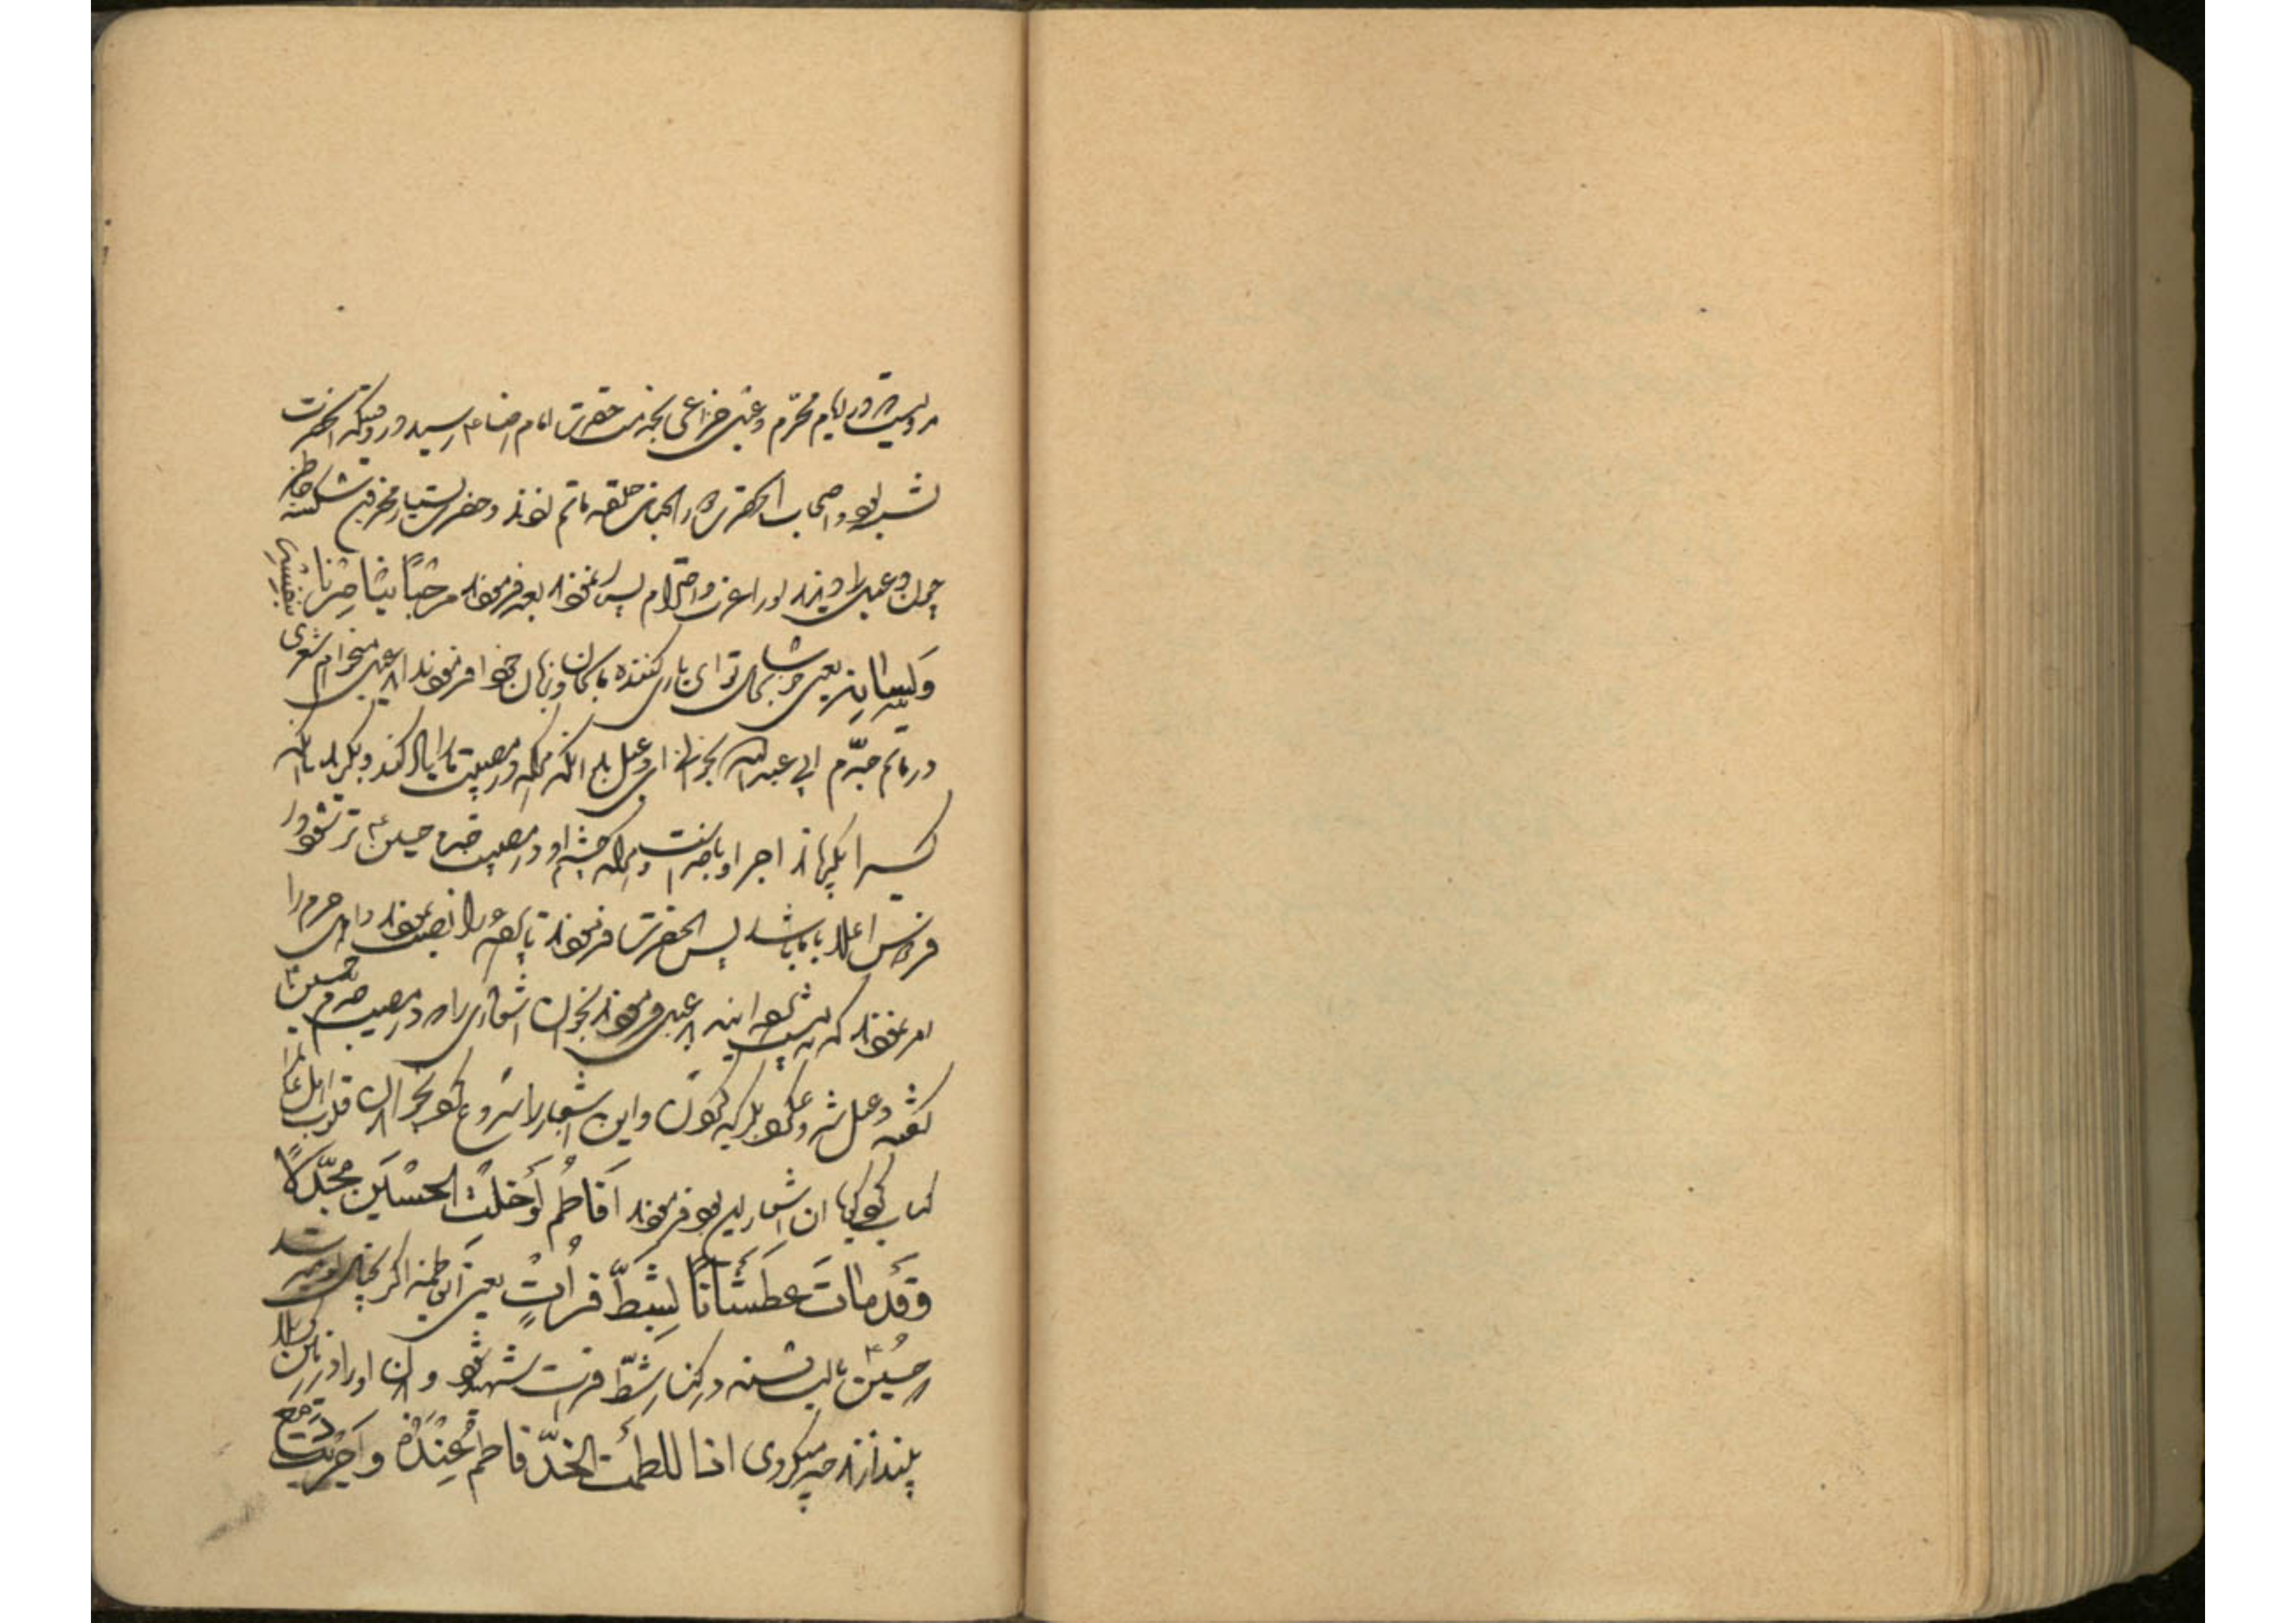 مرویست که در ایام محرّم دعبل خزاعی بخدمت حضرت امام رضا ع رسید در وقتیکه آنحضرت
نشسته بود و اصحاب آنحضرت در آنجناب حلقه ماتم بودند و حضرت بسیار محزون شکسته خاطر
چون دعبل را دیدند او را عزت و احترام بسیار نمودند بعد فرمودند مرحبًا بناصرنا بنفسه
ولسانه یعنی خوشا بحال تو ای یاری کننده ما بجان و زبان خود فرمودند ای دعبل میخواهم شعری
در ماتم جدّم ابی عبدالله بخوانی ای دعبل بدان آنکه هرکه در مصیبت ما را یاد کند و بگرید یا آنکه
کسیرا بگریاند اجر او با خداست و هرکه چشم او در مصیبت جدم حسین ع تر شود در
فردوس اعلا با ما باشد پس آنحضرت فرمودند تا پرده را نصب نمودند و اهل حرم را
امر نمودند که پشت پرده آیند دعبل فرمودند بخوان اشعاری را که در مصیبت جدم حسین ع
گفته دعبل شروع کرد بگریه کردن و این اشعار را شروع کرد بخواندن قلوب اهل عزا را
کباب کرد از جمله آن اشعار این بود فرمودند افاطمُ لو خلتِ الحسین مجدّلاً
وقد مات عطشانًا بشطّ فراتٍ یعنی ای فاطمه اگر بخیال تو میرسید
که حسین ع با لب تشنه در کنار شطّ فرات شهید شود و بدن او را در زمین کربلا
بیندازند چه میکردی اذا للطمت الخدّ فاطمُ عندهُ واجریت دمع